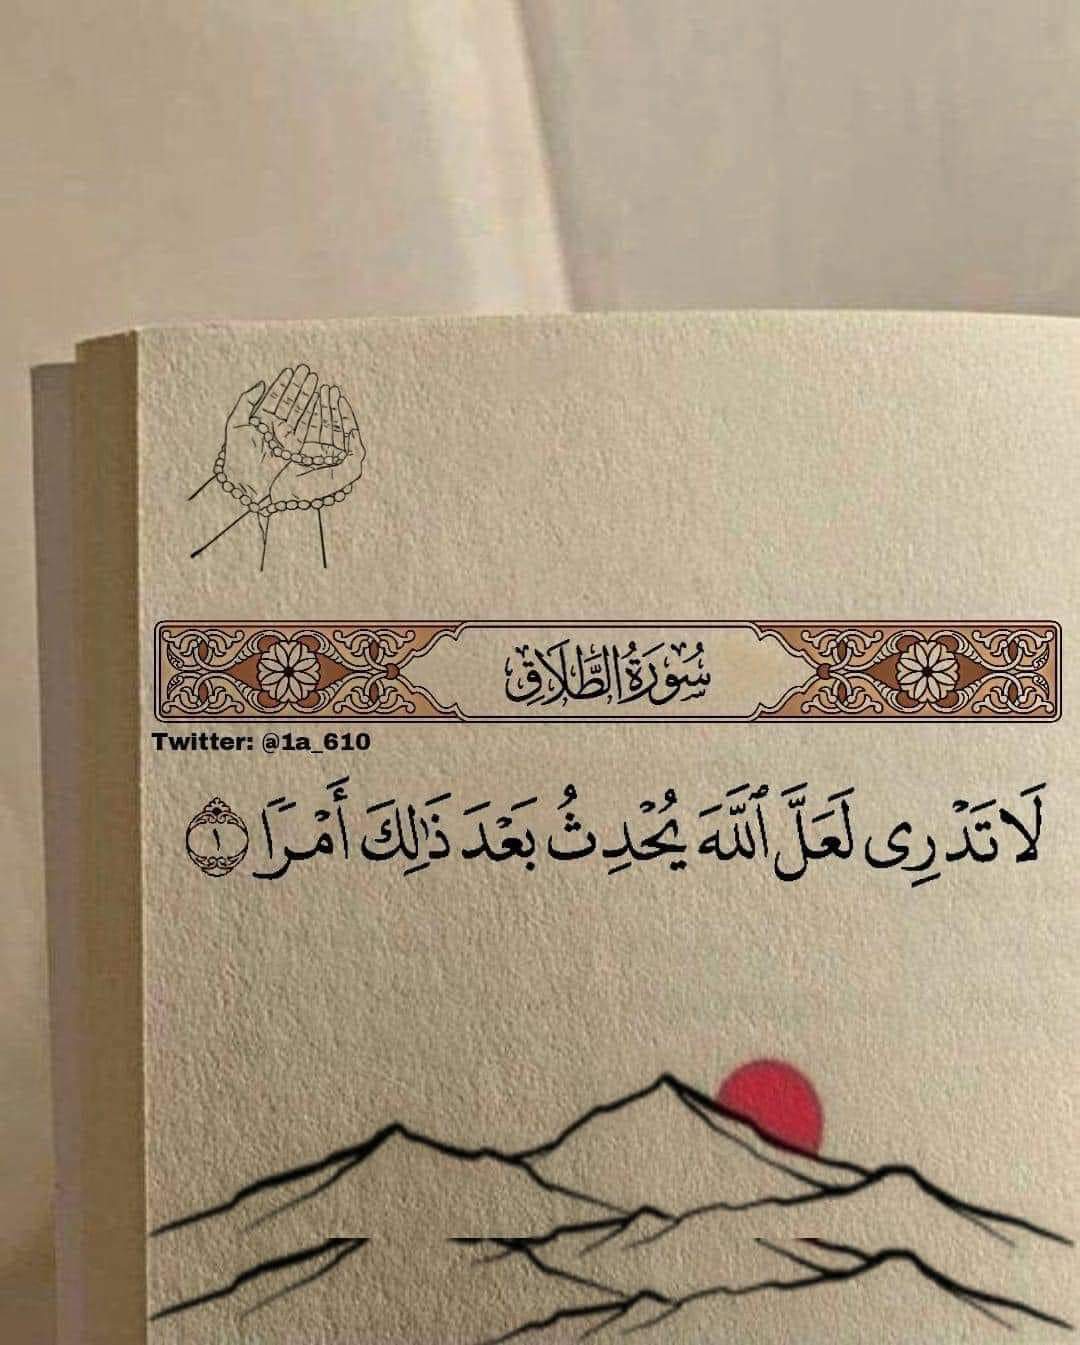 سُورَةُ الطَّلَاقِ
Twitter: @1a_610
لَا تَدْرِى لَعَلَّ ٱللَّهَ يُحْدِثُ بَعْدَ ذَٰلِكَ أَمْرًا ١